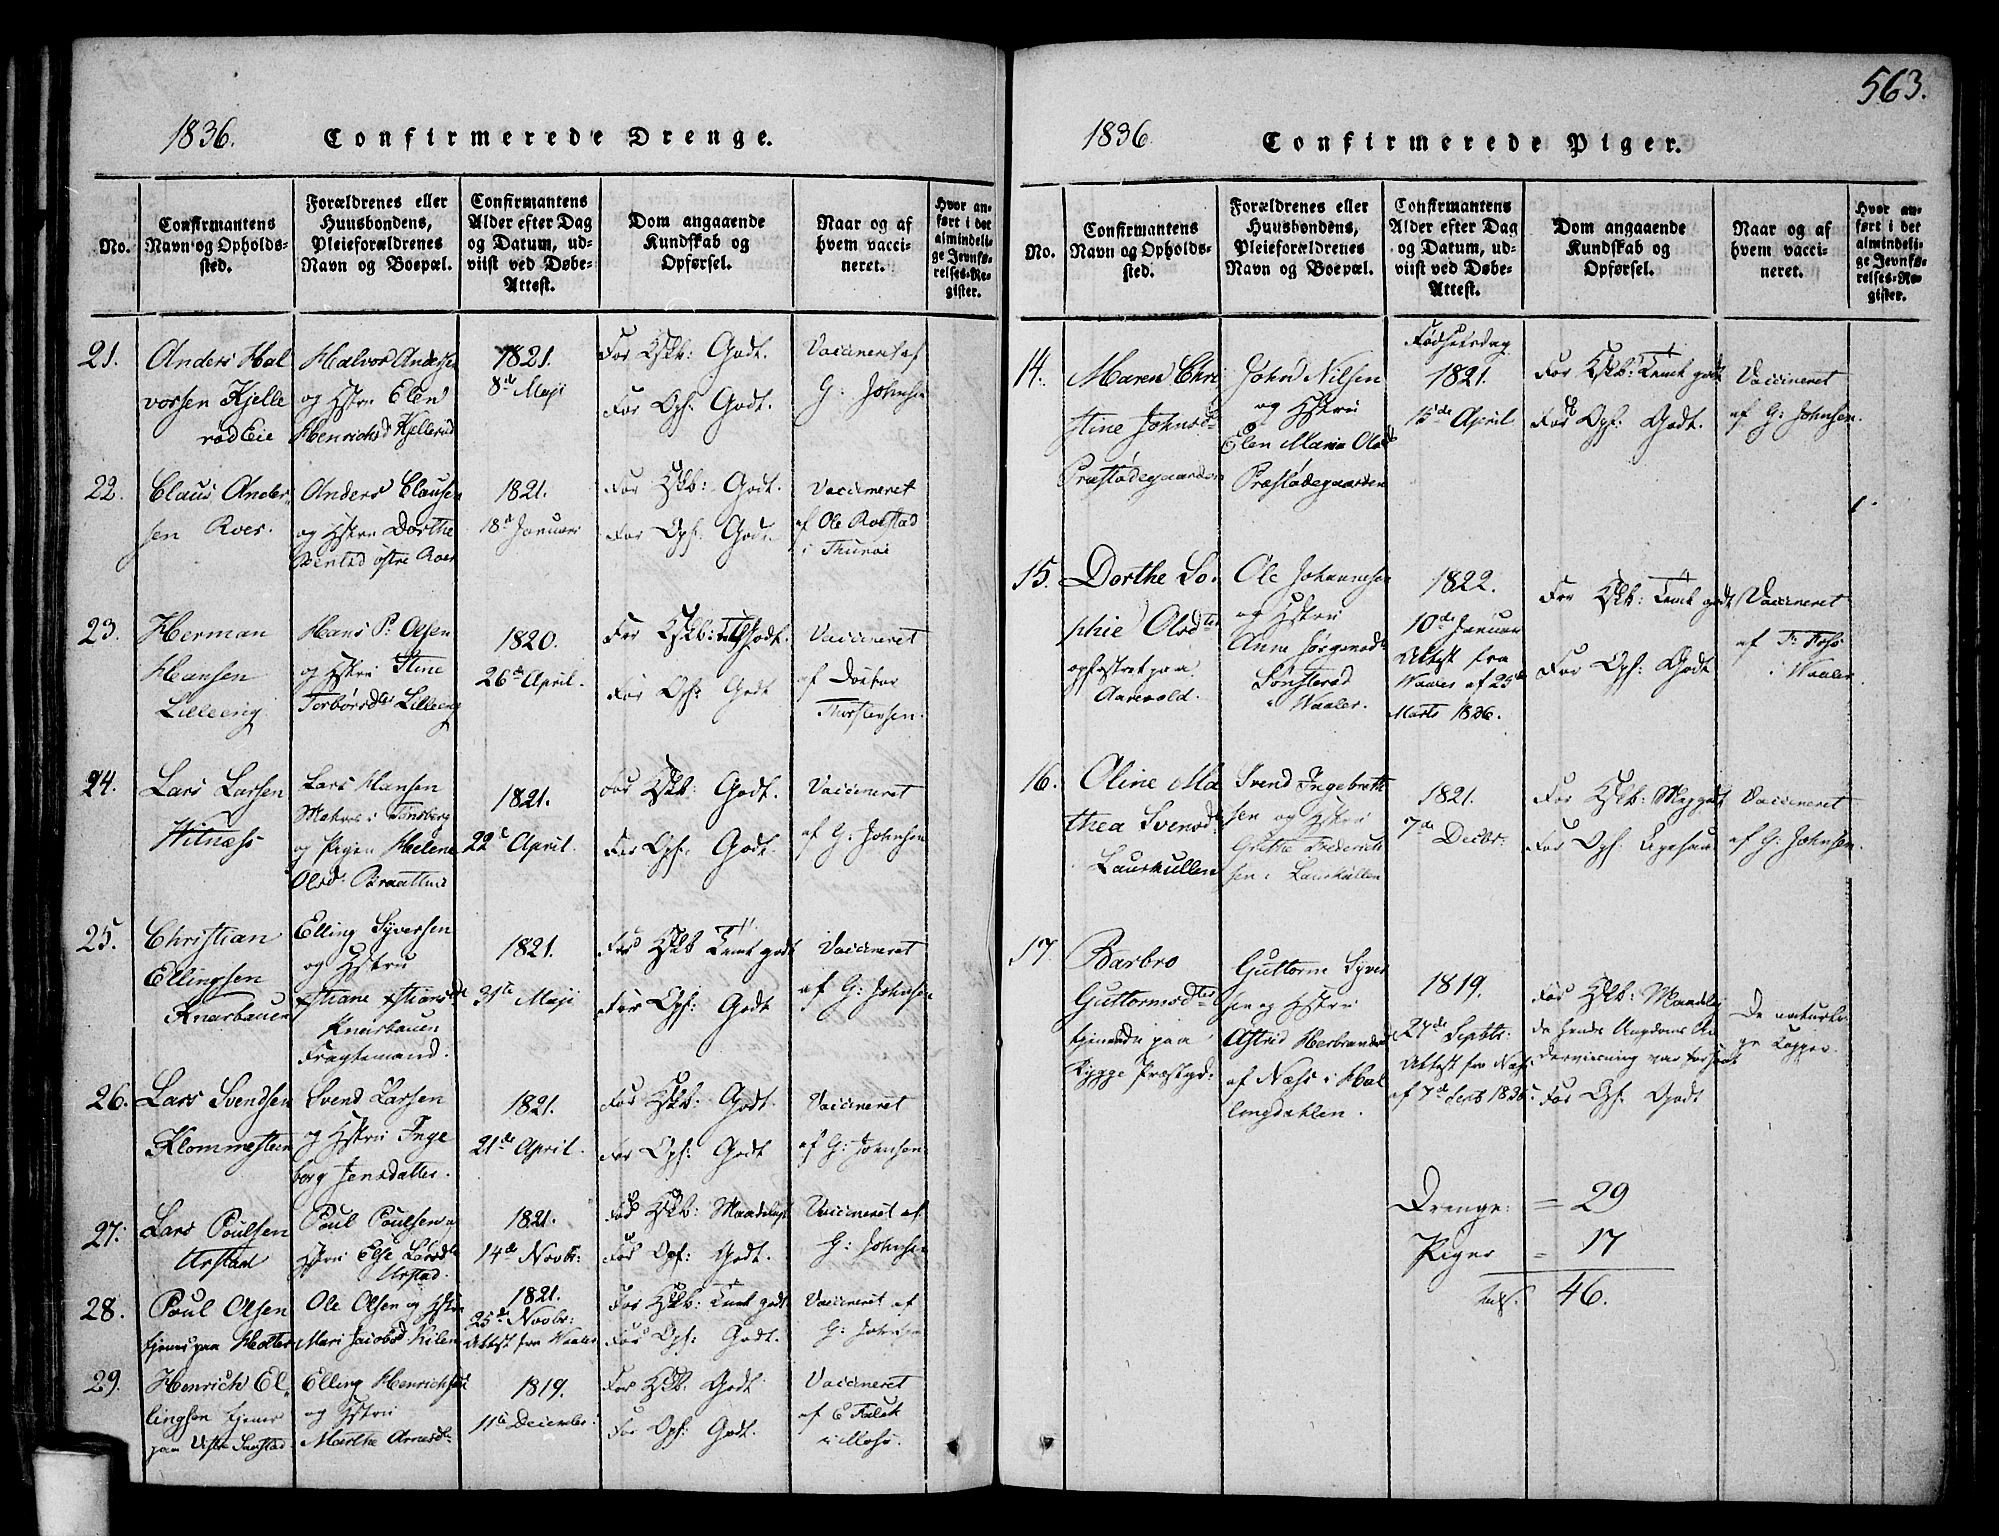 1836. Confirmerede Drenge.
No.
Confirmantens
Navn og Opholds-
sted.
Forældrenes eller
Huusbondens,
Pleieforældrenes
Navn og Boepæl.
Confirmantens
Alder efter Dag
og Datum, ud-
viist ved Døbe-
Attest.
Dom angaaende
Kundskab og
Opførsel.
Naar og af
hvem vacci-
neret.
Hvor an-
ført i det
almindeli-
ge Jevnfø-
relses-Re-
gister.
21.
Anders Hal
vorsen Kjelle
rød Eie
Halvor Andersen
og Hstru Elen
Henrichsd Kjellerød
1821.
8de Maji
For Kskb: Godt.
For Opf: Godt.
Vaccineret af
G: Johnsen
22.
Claus Ander-
sen Roer.
Anders Clausen
og Hstru Dorthe
østre Roer
1821.
18de Januar
For Kskb: Godt.
For Opf: Godt.
Vaccineret
af Ole Rolstad
i Thurøe
23.
Herman
Hansen
Lilleeng
Hans P: Olsen
og Hstru Stine
Torbörsdtr Lilleeng
1820.
26de April.
For Kskb: Godt.
For Opf: Godt
Vaccineret
af Doctor
Thorstensen.
24.
Lars Larsen
Vitnæss
Lars Hansen
Matros i Tönsberg
og Pigen Helene
Olsd: Braatten
1821.
22de April.
For Kskb: Godt.
For Opf: Godt.
Vaccineret
af G: Johnsen
25.
Christian
Ellingsen
Knarbauen
Elling Syversen
og Hstru
Xstiane Xstiansdtr
Knarbauen
Fragtemand.
1821.
31te Maji
For Kskb Temt godt
For Opf: Godt
Vaccineret
af G: Johnsen
26.
Lars Svendsen
Klommesteen
Svend Larsen
og Hstru Inge
borg Jensdatter.
1821.
21de April.
For Kskb: Godt.
For Opf: Godt
Vaccineret
af G: Johnsen
27.
Lars Poulsen
Urstad
Poul Poulsen og
Hstru Else Larsdtr
Urstad.
1821.
14de Novbr:
For Kskb: Maadeligt
For Opf: Godt.
Vaccineret af
G: Johnsen
28.
Poul Olsen
tjener paa Holter
Ole Olsen og Hstru
Mari Jacobsd. Kilen
1821.
25de Novbr:
Attest fra Waaler
For Kskb: Temt godt
For Opf: Godt.
Vaccineret af
G: Johnsen
29.
Henrich El-
lingsen tjener
paa
Elling Henrichsen
og Hstru
Marthe Arnesd:
1819.
11te December.
For Kskb: Godt
For Opf: Godt.
Vaccineret
af E Falck
i Moss.
563.
1836. Confirmerede Piger.
No.
Confirmantens
Navn og Opholds-
sted.
Forældrenes eller
Huusbondens,
Pleieforældrenes
Navn og Boepæl.
Confirmantens
Alder efter Dag
og Datum, ud-
viist ved Døbe-
Attest.
Dom angaaende
Kundskab og
Opførsel.
Naar og af
hvem vacci-
neret.
Hvor an-
ført i det
almindeli-
ge Jevnfø-
relses-Re-
gister.
14.
Maren Chri
stine Johnsd
Præstødegaarden
John Nilsen
og Hstru
Elen Maria Olsd
Præstødegaarden
Fødselsdag
1821.
15de April
For Kskb: Temt godt
For Opf: Godt.
Vaccineret
af G: Johnsen.
15.
Dorthe So-
phie Olsdtr
opfostret paa
Aarevold.
Ole Johannesen
og Hstru
Anne Jörgensdtr
Sönsterød
i Waaler.
1822.
10de Januar
Attest fra
Waaler af 25de
Marts 1836.
For Kskb: Temt godt
For Opf: Godt
Vaccineret
af
i Waaler.
16.
Oline Ma
thea Svensd
Laurkullen
Svend Ingebreth
sen og Hstru
Grethe Frederich
sen i Laurkullen
1821.
7de Decbr:
For Kskb: Megget
For Opf: Ligesaa
Vaccineret
af G: Johnsen.
17
Barbro
Guttormsdter
tjenende paa
Rygge Præstegd:
Guttorm Syver
sen og Hstru
Astrid Herbrandsd
af Næss i Hal
lingdahlen.
1819.
27de Septbr:
Attest fra Næss
af 7de Septb 1835
For Kskb: Maadelig
da hendes Ungdoms Un
dervisning var forsömt
For Opf: Godt
De naturli-
ge Kopper.
Drenge: = 29
Piger = 17
46.